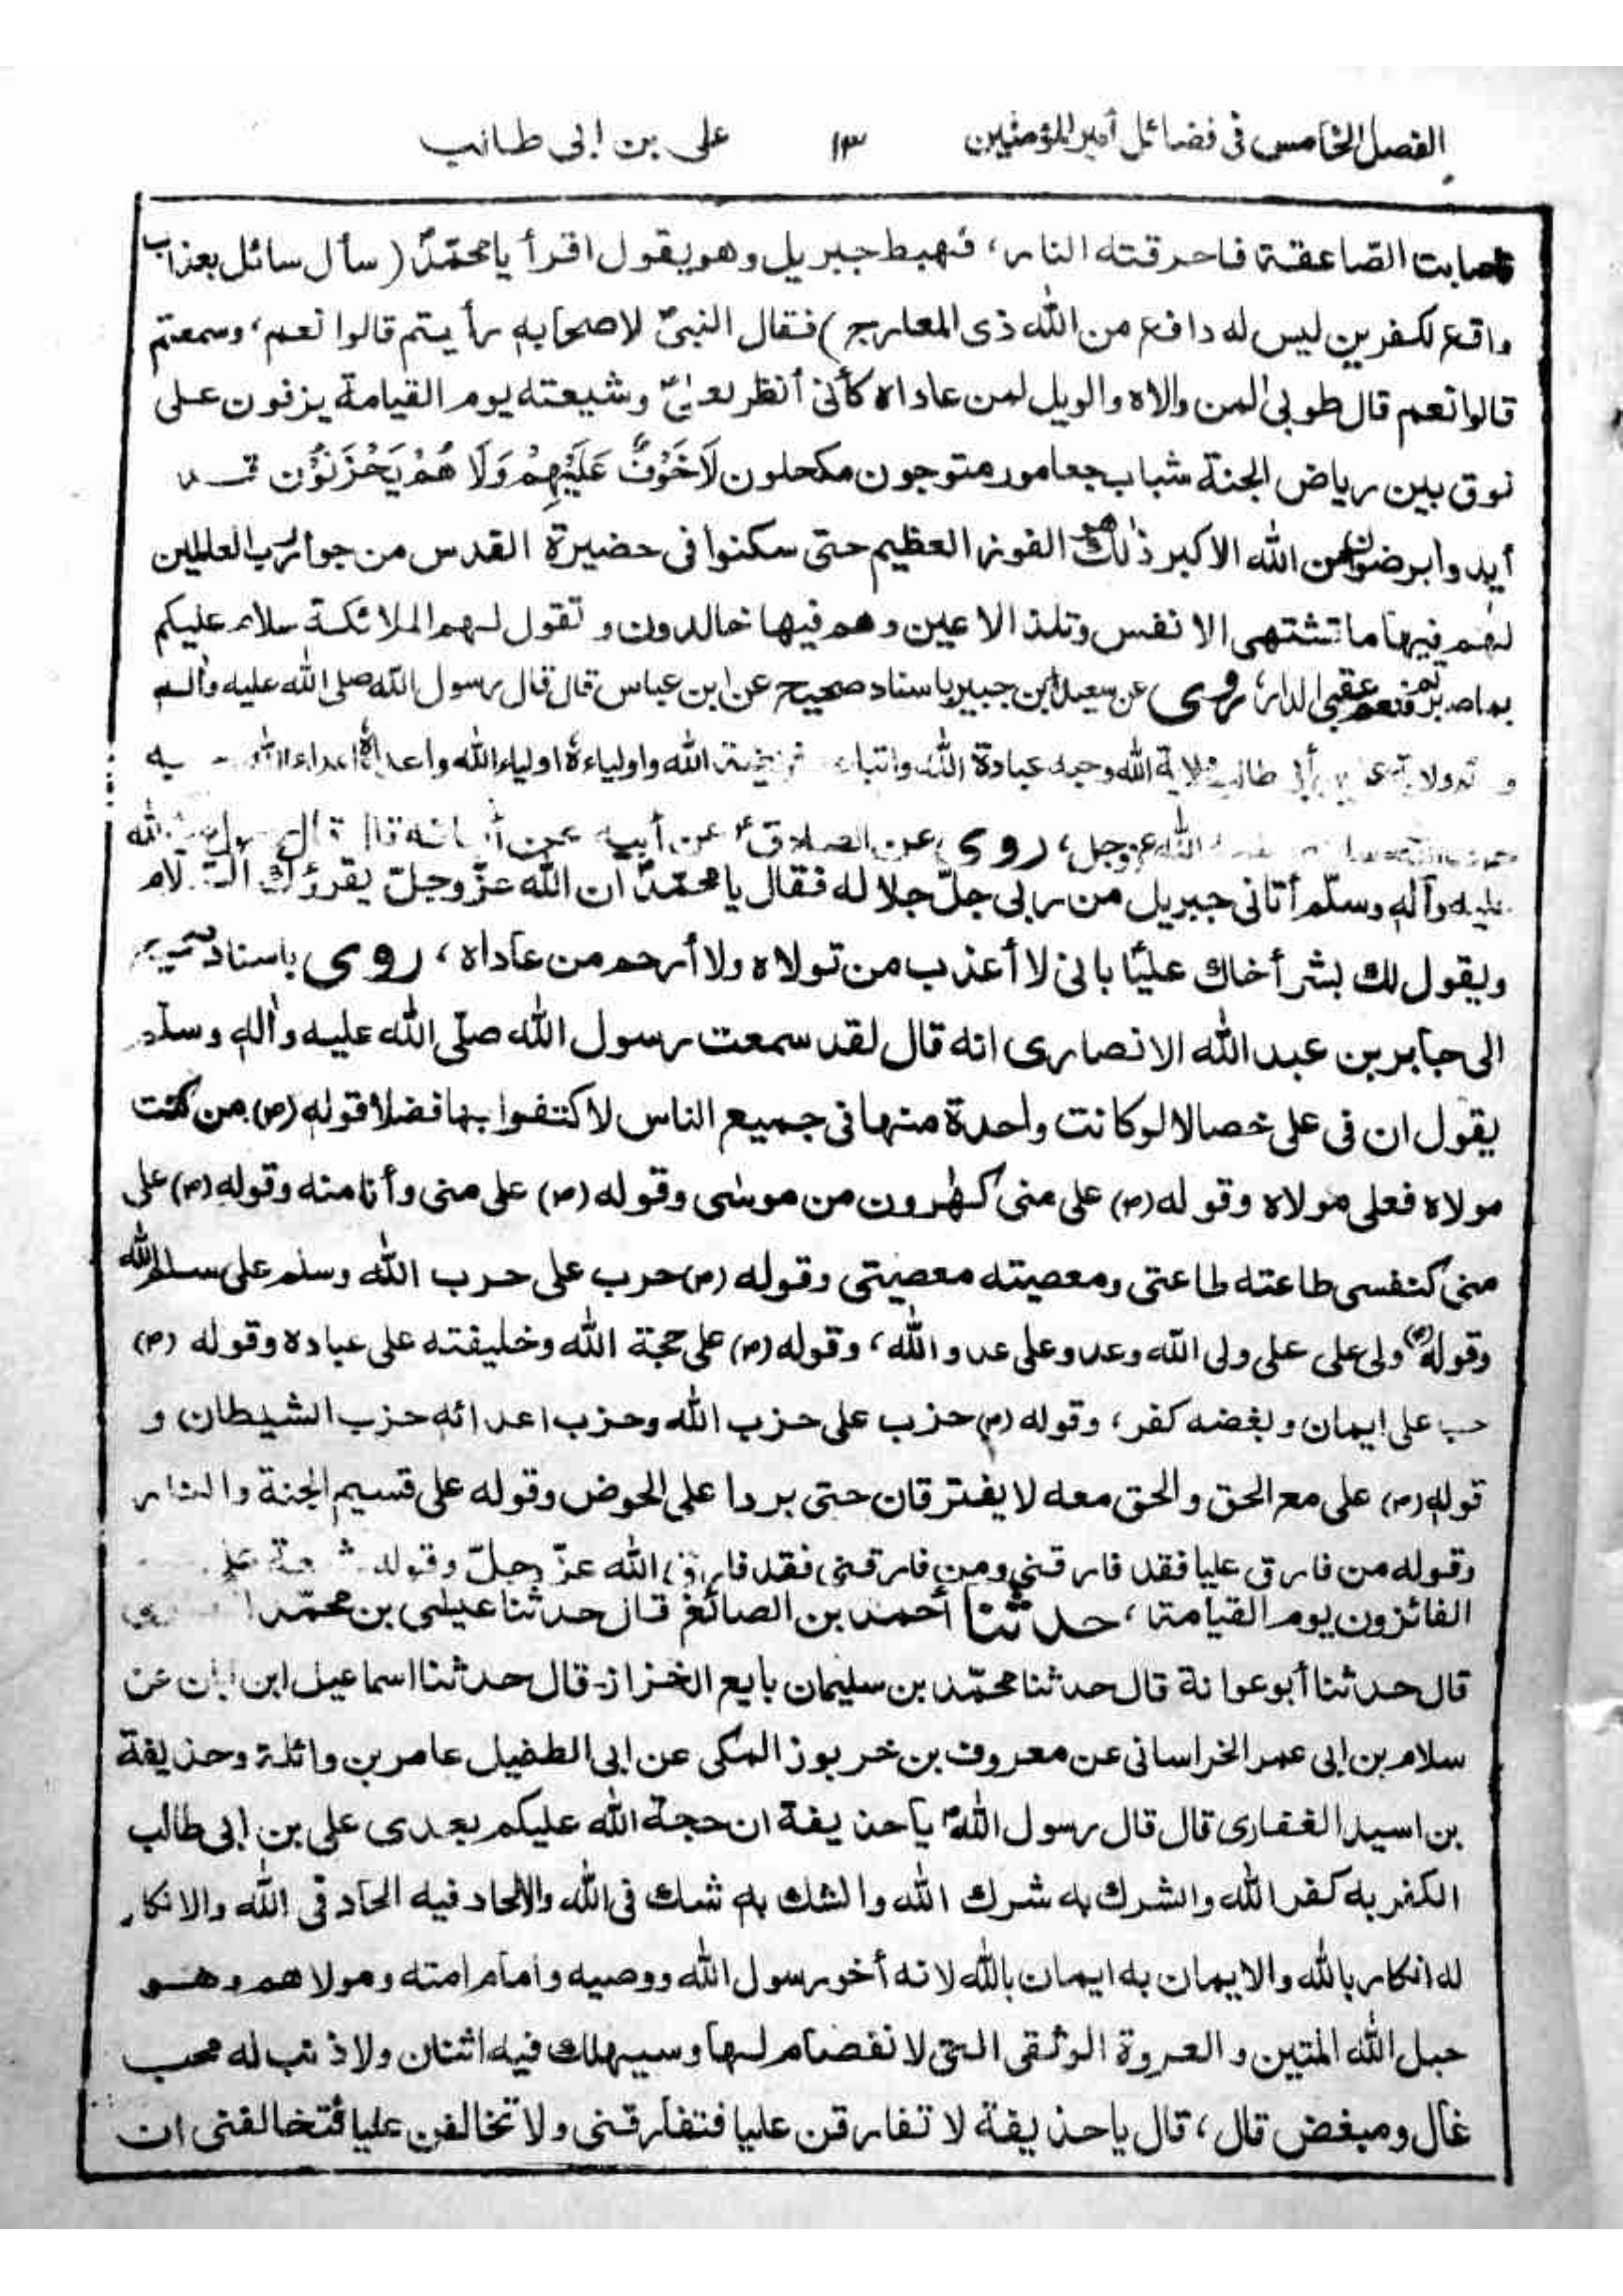 الفصل الخامس فى فضائل أمير المؤمنين ١٣ على بن ابى طالب
فاصابت الصّاعقة فاحرقته النار، فهبط جبريل وهو يقول اقرأ يا محمّدؐ (سأل سائل بعذاب
واقع لكفرين ليس له دافع من الله ذى المعارج) فقال النبىؐ لاصحابه رأيتم قالوا نعم، وسمعتم
قالوا نعم قال طوبى لمن والاه والويل لمن عاداه كأنى أنظر لعلىؑ وشيعته يوم القيامة يزفون على
نوق بين رياض الجنة شباب متوجون مكحلون لَا خَوْفٌ عَلَيْهِمْ وَلَا هُمْ يَحْزَنُوْن
أيدوا برضوان من الله الاكبر ذٰلك هو الفوز العظيم حتى سكنوا فى حضيرة القدس من جوار رب العالمين
لهم فيها ما تشتهى الانفس وتلذ الاعين وهم فيها خالدون و تقول لهم الملائكة سلام عليكم
بما صبرتم فنعم عقبى الدار، روى عن سعيد ابن جبير باسناد صحيح عن ابن عباس قال قال رسول الله صلى الله عليه وآله
طالب ولاية الله وحبه عبادة الله واتباعه فريضة الله واولياءه اولياء الله واعداءه اعداء الله
الله عز وجل، روى عن الصادقؑ عن أبيه عن قال قال رسول الله
عليه وآله وسلّم أتانى جبريل من ربى جلّ جلاله فقال يا محمّدؐ ان الله عزّ وجلّ يقرؤك السلام
ويقول لك بشر أخاك عليًا بانى لا أعذب من تولاه ولا أرحم من عاداه، روى باسناد
الى جابر بن عبد الله الانصارى انه قال لقد سمعت رسول الله صلّى الله عليه وآله وسلّم
يقول ان فى على خصالا لو كانت واحدة منها فى جميع الناس لاكتفوا بها فضلا قوله (ص) من كنت
مولاه فعلى مولاه وقوله (ص) على منى كهٰرون من موسٰى وقوله (ص) على منى وأنا منه وقوله (ص) على
منى كنفسى طاعته طاعتى ومعصيته معصيتى وقوله (ص) حرب على حرب الله وسلم على سلم الله
وقوله (ص) ولى على على ولى الله وعدو على عدو الله، وقوله (ص) على حجة الله وخليفته على عباده وقوله (ص)
حب على ايمان وبغضه كفر، وقوله (ص) حزب على حزب الله وحزب اعدائه حزب الشيطان و
قوله (ص) على مع الحق والحق معه لا يفترقان حتى يردا على الحوض وقوله على قسيم الجنة والنار
وقوله من فارق عليا فقد فارقنى ومن فارقنى فقد فارق الله عزّ وجلّ وقوله شيعة على
الفائزون يوم القيامة، حدثنا أحمد بن الصائغ قال حدثنا عيسٰى بن محمّد
قال حدثنا أبو عوانة قال حدثنا محمّد بن سليمان بايع الخزاز قال حدثنا اسماعيل ابن ابان عن
سلام بن ابى عمر الخراسانى عن معروف بن خربوز المكى عن ابى الطفيل عامر بن واثلة وحذيفة
بن اسيد الغفارى قال قال رسول اللهؐ يا حذيفة ان حجة الله عليكم بعدى على بن ابى طالب
الكفر به كفر الله والشرك به شرك الله والشك به شك فى الله والالحاد فيه الحاد فى الله والانكار
له انكار بالله والايمان به ايمان بالله لانه أخو رسول الله ووصيه وامام امته ومولاهم وهو
حبل الله المتين والعروة الوثقى التى لا نفصام لها وسيهلك فيه اثنان ولا ذنب له محب
غال ومبغض قال، قال يا حذيفة لا تفارقن عليا فتفارقنى ولا تخالفن عليا فتخالفنى ان